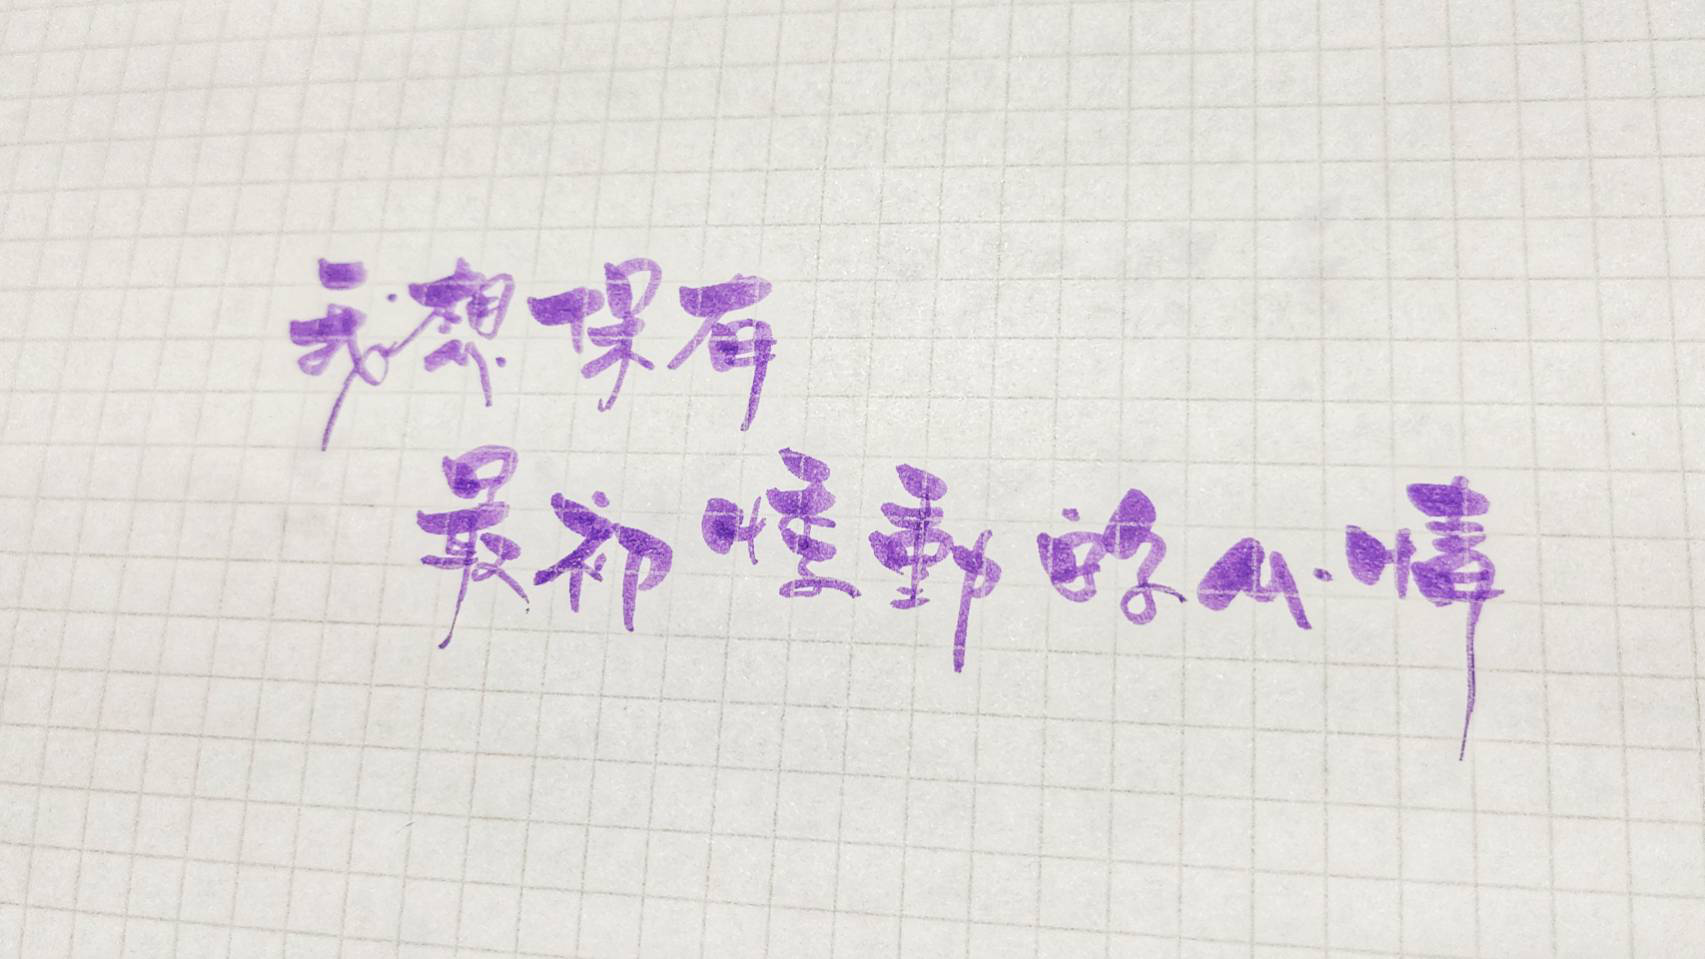 我想保有
最初悸動的心情